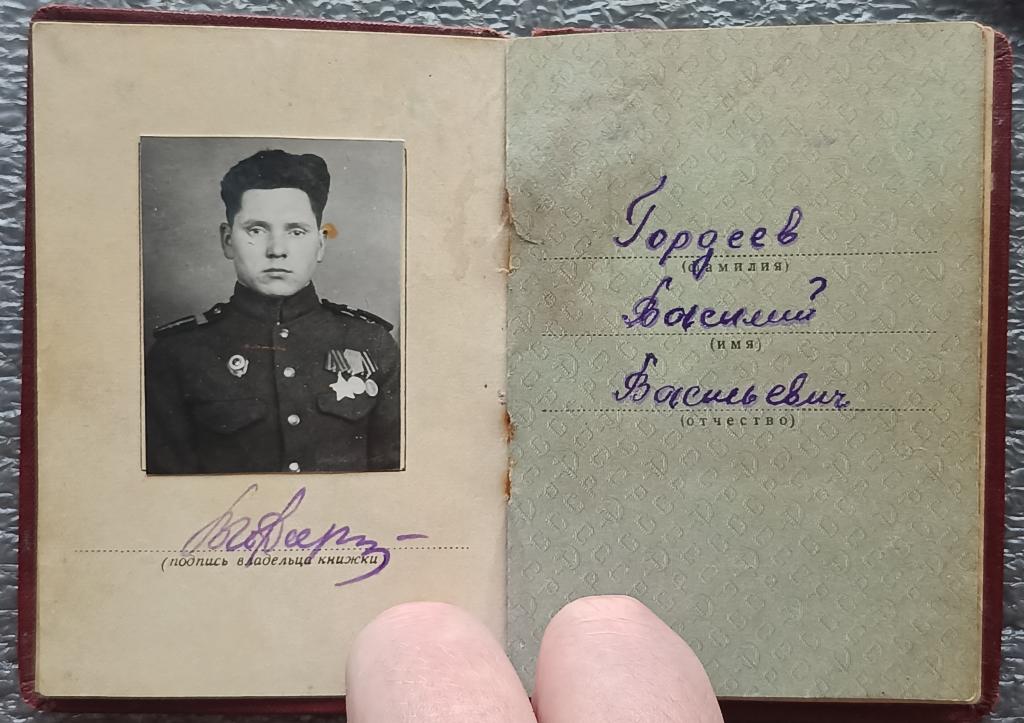 (подпись владельца книжки)
Гордеев
(фамилия)
Василий
(имя)
Васильевич
(отчество)